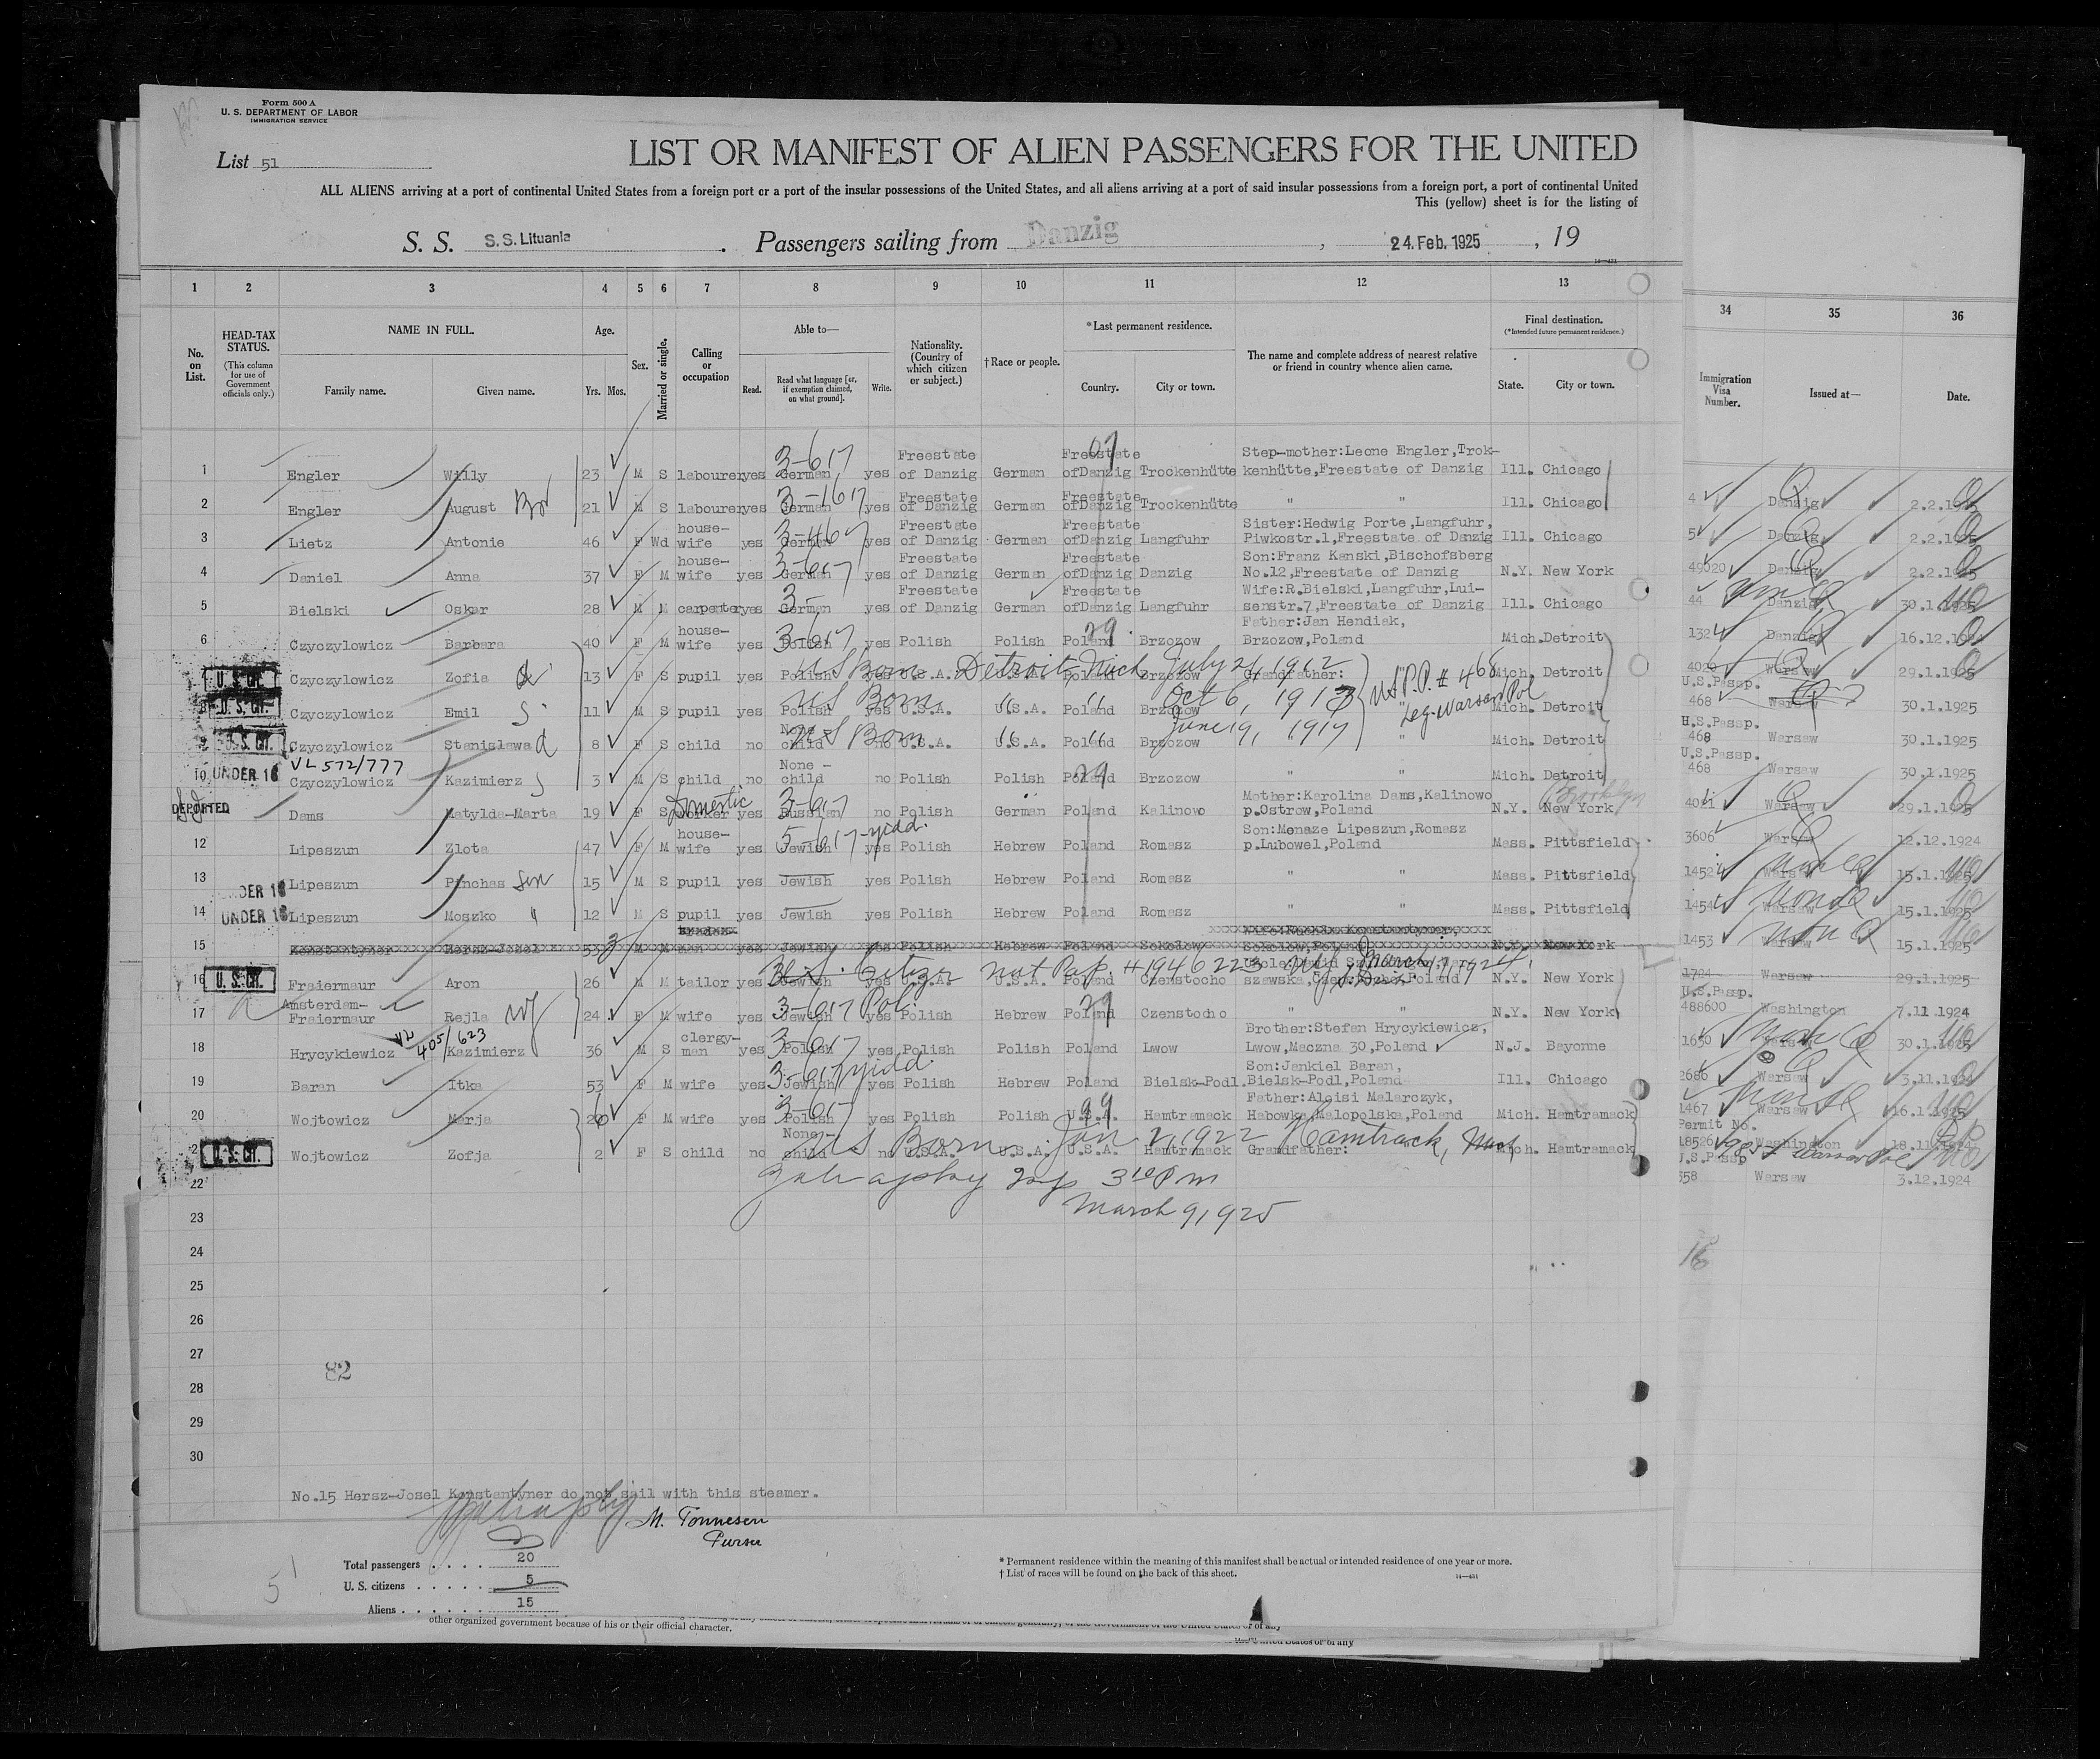 Form 500 A
U. S. DEPARTMENT OF LABOR
IMMIGRATION SERVICE
List 51
LIST OR MANIFEST OF ALIEN PASSENGERS FOR THE UNITED
ALL ALIENS arriving at a port of continental United States from a foreign port or a port of the insular possessions of the United States, and all aliens arriving at a port of said insular possessions from a foreign port, a port of continental United
This (yellow) sheet is for the listing of
S. S. S.S. Lituania . Passengers sailing from Danzig , 24. Feb. 1925 , 19
1 2 3 4 5 6 7 8 9 10 11 12 13 34 35 36
No. on List. HEAD-TAX STATUS. (This column for use of Government officials only.) NAME IN FULL. Family name. Given name. Age. Yrs. Mos. Sex. Married or single. Calling or occupation Able to— Read. Read what language [or, if exemption claimed, on what ground]. Write. Nationality. (Country of which citizen or subject.) † Race or people. * Last permanent residence. Country. City or town. The name and complete address of nearest relative or friend in country whence alien came. Final destination. (*Intended future permanent residence.) State. City or town. Immigration Visa Number. Issued at— Date.
1 Engler Willy 23 M S labourer yes German yes Freestate of Danzig German Freestate ofDanzig Trockenhütte Step-mother:Leone Engler,Trok-kenhütte,Freestate of Danzig Ill. Chicago
2 Engler August 21 M S labourer yes German yes Freestate of Danzig German Freestate ofDanzig Trockenhütte " " Ill. Chicago 4 Danzig 2.2.1925
3 Lietz Antonie 46 F Wd house-wife yes German yes Freestate of Danzig German Freestate ofDanzig Langfuhr Sister:Hedwig Porte,Langfuhr, Piwkostr.1,Freestate of Danzig Ill. Chicago 5 Danzig 2.2.1925
4 Daniel Anna 37 F M house-wife yes German yes Freestate of Danzig German Freestate ofDanzig Danzig Son:Franz Kanski,Bischofsberg No.12,Freestate of Danzig N.Y. New York 49020 Danzig 2.2.1925
5 Bielski Oskar 28 M M carpenter yes German yes Freestate of Danzig German Freestate ofDanzig Langfuhr Wife:R.Bielski,Langfuhr,Lui-senstr.7,Freestate of Danzig Ill. Chicago 44 Danzig 30.1.1925
6 Czyczylowicz Barbara 40 F M house-wife yes Polish yes Polish Polish Poland Brzozow Father:Jan Hendiak, Brzozow,Poland Mich. Detroit 132 Danzig 16.12.1924
U. S. CIT. Czyczylowicz Zofia d 13 F S pupil yes Polish yes U.S.A. U.S.A. Poland Brzozow Grandfather: Mich. Detroit 4020 Warsaw 29.1.1925
US Born Detroit Mich July 21, 1912
U. S. CIT. Czyczylowicz Emil S 11 M S pupil yes Polish yes U.S.A. U.S.A. Poland Brzozow " Mich. Detroit U.S.Passp. 468 Warsaw 30.1.1925
US Born Oct 6, 1913 US P.P. # 468 Leg-Warsaw Pol
U. S. CIT. Czyczylowicz Stanislawa d 8 F S child no None child no U.S.A. U.S.A. Poland Brzozow " " Mich. Detroit U.S.Passp. 468 Warsaw 30.1.1925
US Born June 19, 1917
10 UNDER 16 VL 572/777 Czyczylowicz Kazimierz S 3 M S child no None - child no Polish Polish Poland Brzozow " " Mich. Detroit U.S.Passp. 468 Warsaw 30.1.1925
DEPORTED Dams Matylda-Marta 19 F S Domestic worker yes Russian no Polish German Poland Kalinowo Mother:Karolina Dams,Kalinowo p.Ostrow,Poland N.Y. New York Brooklyn 4021 Warsaw 29.1.1925
12 Lipeszun Zlota 47 F M house-wife yes Jewish yes Polish Hebrew Poland Romasz Son:Menaze Lipeszun,Romasz p.Lubowel,Poland Mass. Pittsfield 3606 Warsaw 12.12.1924
13 UNDER 16 Lipeszun Pinchas son 15 M S pupil yes Jewish yes Polish Hebrew Poland Romasz " " Mass. Pittsfield 1452 Warsaw 15.1.1925
14 UNDER 16 Lipeszun Moszko " 12 M S pupil yes Jewish yes Polish Hebrew Poland Romasz " " Mass. Pittsfield 1454 Warsaw 15.1.1925
15 Konstantyner Hersz-Josel 53 M M man yes Jewish yes Polish Hebrew Poland Sokolow Sokolow,Poland N.Y. New York 1453 Warsaw 15.1.1925
16 U. S. CIT. Fraiermaur Aron 26 M M tailor yes Jewish yes U.S.A. U.S.A. Poland Czenstocho N.Y. New York 1724 Warsaw 29.1.1925
U.S. Citizen Nat Pap. # 1946223
17 Amsterdam-Fraiermaur Rejla wf 24 F M wife yes Jewish yes Polish Hebrew Poland Czenstocho " " N.Y. New York U.S.Passp. 488600 Washington 7.11.1924
18 VL 405/623 Hrycykiewicz Kazimierz 36 M S clergy-man yes Polish yes Polish Polish Poland Lwow Brother:Stefan Hrycykiewicz, Lwow,Maczna 30,Poland N.J. Bayonne 1650 Warsaw 30.1.1925
19 Baran Itka 53 F M wife yes Jewish yes Polish Hebrew Poland Bielsk-Podl. Son:Jankiel Baran, Bielsk-Podl,Poland Ill. Chicago 2686 Warsaw 3.11.1924
20 Wojtowicz Marja 26 F M wife yes Polish yes Polish Polish U.S.A. Hamtramack Father:Aloisi Malarczyk, Habowka,Malopolska,Poland Mich. Hamtramack 1467 Warsaw 16.1.1925
U. S. CIT. Wojtowicz Zofja 2 F S child no None- child no U.S.A. U.S.A. U.S.A. Hamtramack Grandfather: Mich. Hamtramack Permit No. 18526 Washington 18.11.1924
US Born Jan 1, 1922 Hamtrack, Mich
22 U.S.Passp 558 Warsaw 3.12.1924
3 10 Pm
23 March 9, 1925
24
25
26
27
28
29
30
82
16
No.15 Hersz-Josel Konstantyner do not sail with this steamer.
M. Tonnesen
Purser
Total passengers . . . . 20
U. S. citizens . . . . . 5
Aliens . . . . . . 15
51
* Permanent residence within the meaning of this manifest shall be actual or intended residence of one year or more.
† List of races will be found on the back of this sheet.
14—431
other organized government because of his or their official character.